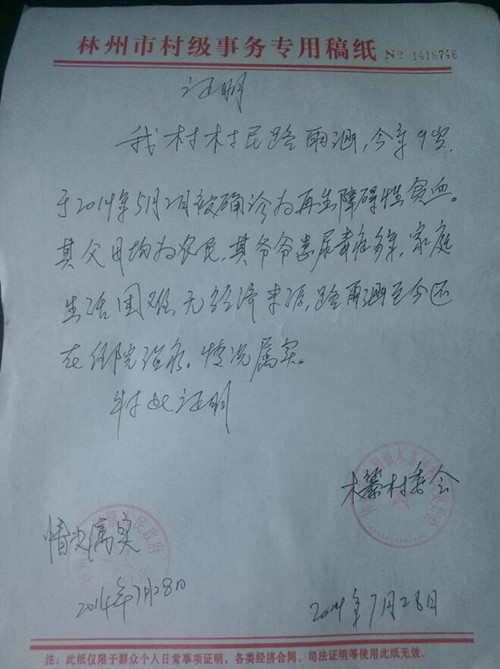 林州市村级事务专用稿纸 №1416746
证明
我村村民路雨涵,今年9岁,
于2014年5月2日被确诊为再生障碍性贫血。
其父母均为农民,其爷爷患尿毒症多年,家庭
生活困难,无经济来源,路雨涵至今还
在住院治疗。情况属实。
特此证明
木纂村委会
情况属实
2014年7月28日
2014年7月28日
注:此纸仅限于群众个人日常事项证明,各类经济合同、司法证明等使用此纸无效。